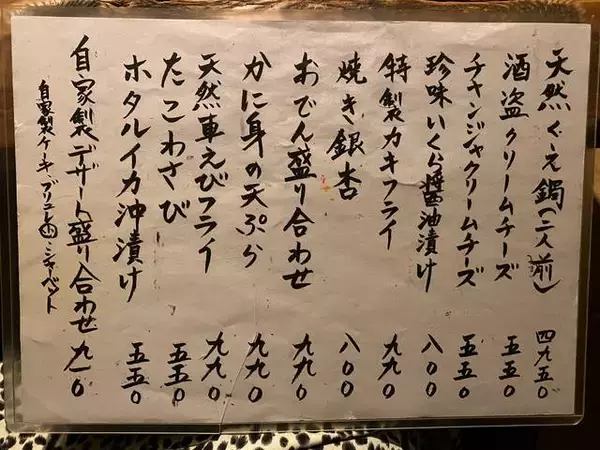 天然くえ鍋(二人前) 四九五〇
酒盗クリームチーズ 五五〇
チャンジャクリームチーズ 五五〇
珍味いくら醤油漬け 八〇〇
特製カキフライ 九九〇
焼き銀杏 八〇〇
おでん盛り合わせ 九九〇
かに身の天ぷら 九九〇
天然車えびフライ 九九〇
たこわさび 五五〇
ホタルイカ沖漬け 五五〇
自家製デザート盛り合わせ 九一〇
自家製ケーキ、ブリュレ、シャーベット